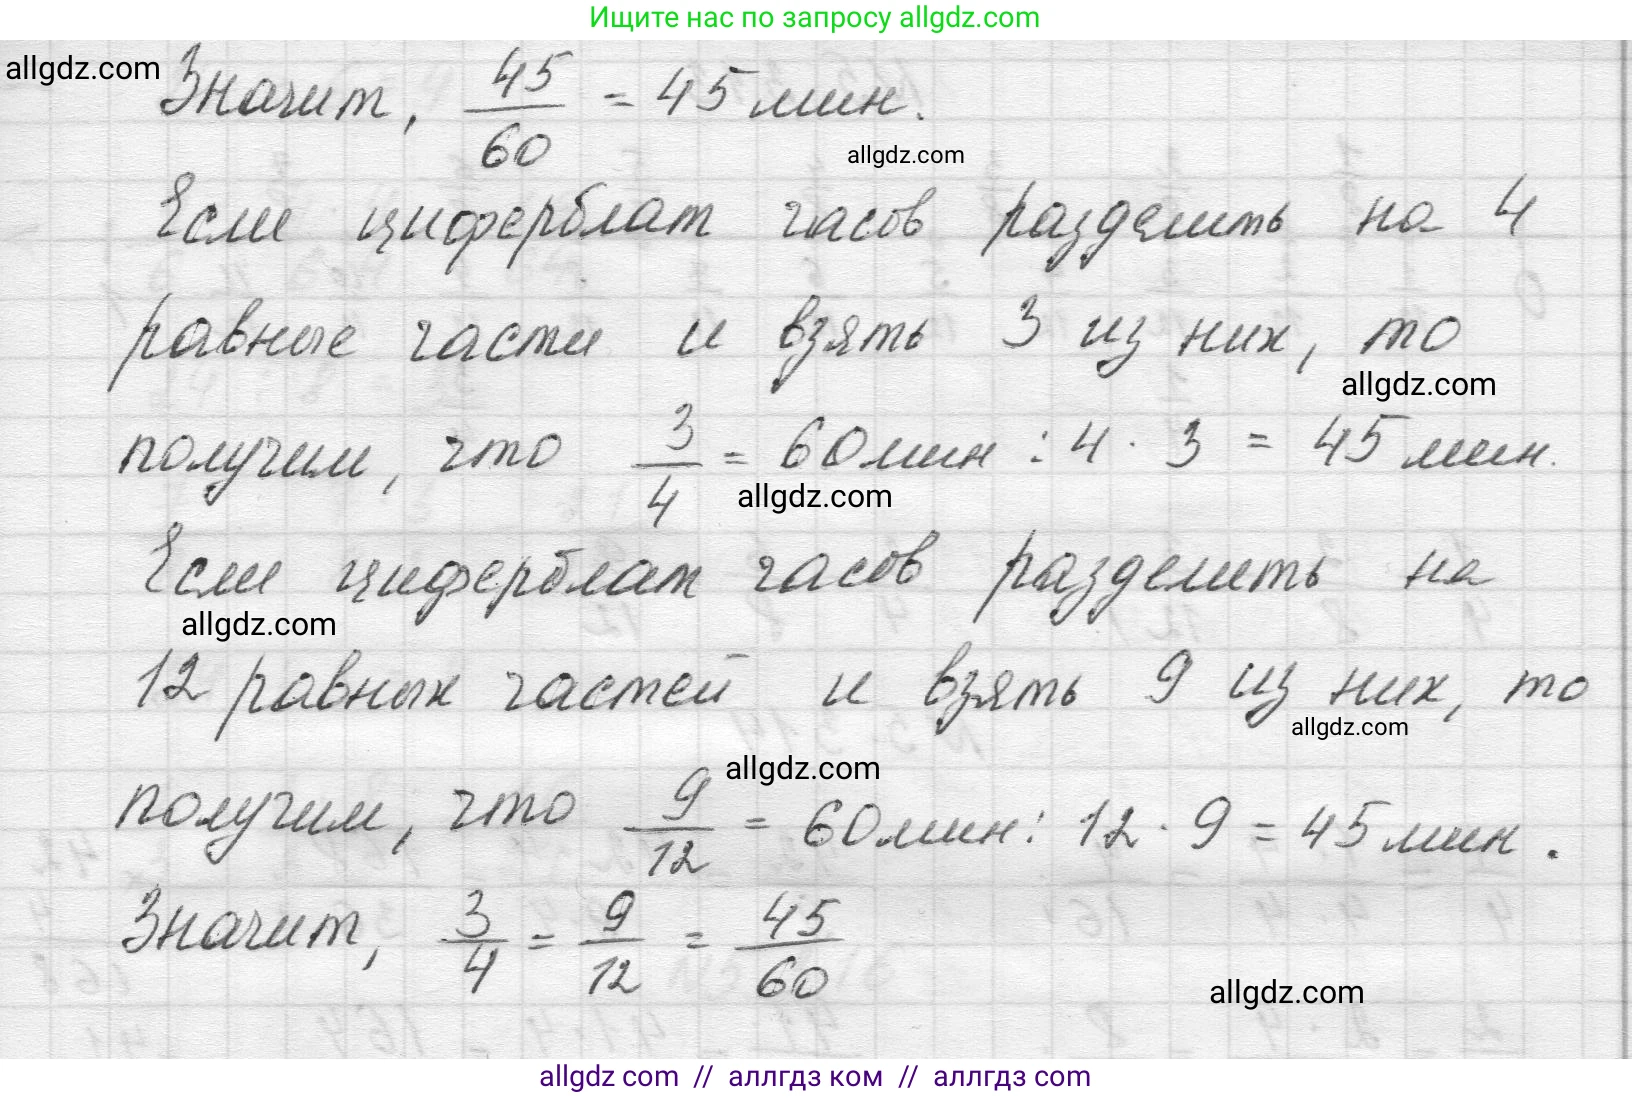 Ищите нас по запросу allgdz.com
allgdz.com
Значит, 45/60 = 45 мин.
allgdz.com
Если циферблат часов разделить на 4
равные части и взять 3 из них, то
allgdz.com
получим, что 3/4 = 60 мин : 4 · 3 = 45 мин.
allgdz.com
Если циферблат часов разделить на
allgdz.com
12 равных частей и взять 9 из них, то
allgdz.com
allgdz.com
получим, что 9/12 = 60 мин : 12 · 9 = 45 мин.
Значит, 3/4 = 9/12 = 45/60
allgdz.com
allgdz com // аллгдз ком // аллгдз com